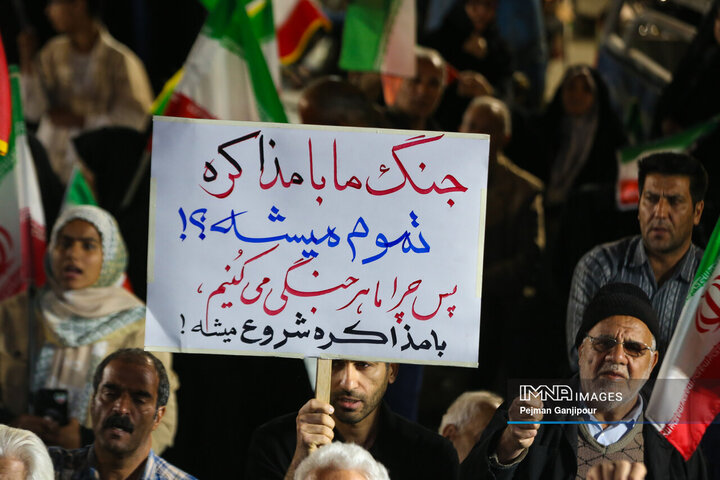 جنگ ما با مذاکره
تموم میشه؟!
پس چرا ما هر جنگی میکنیم،
با مذاکره شروع میشه!
IMNA IMAGES
Pejman Ganjipour